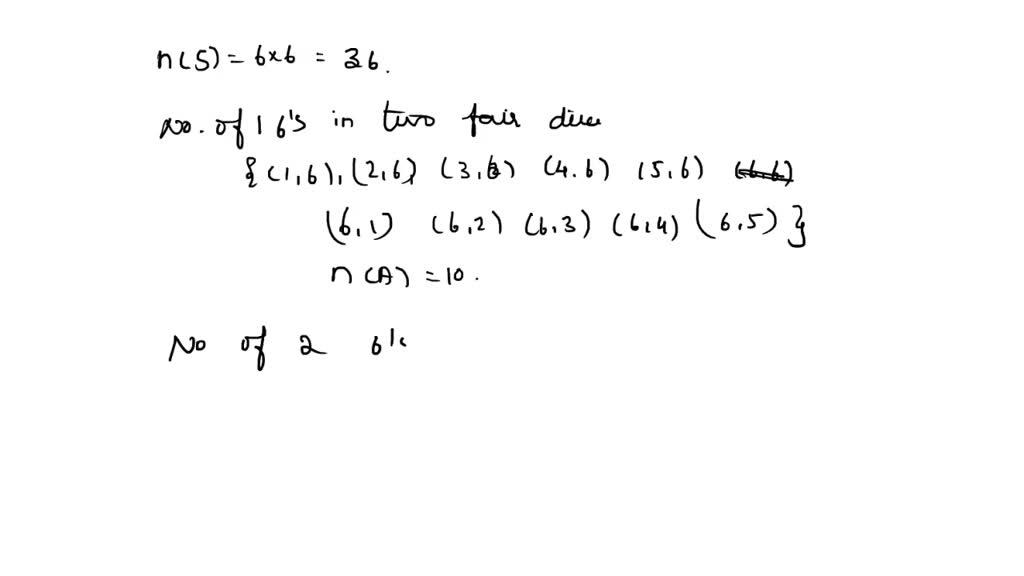 n(S) = 6×6 = 36.
No. of 1 6's in two fair dice
{(1,6), (2,6) (3,6) (4.6) (5,6) (6,6)
(6,1) (6,2) (6,3) (6,4) (6,5)}
n(A) = 10.
No of 2 6's